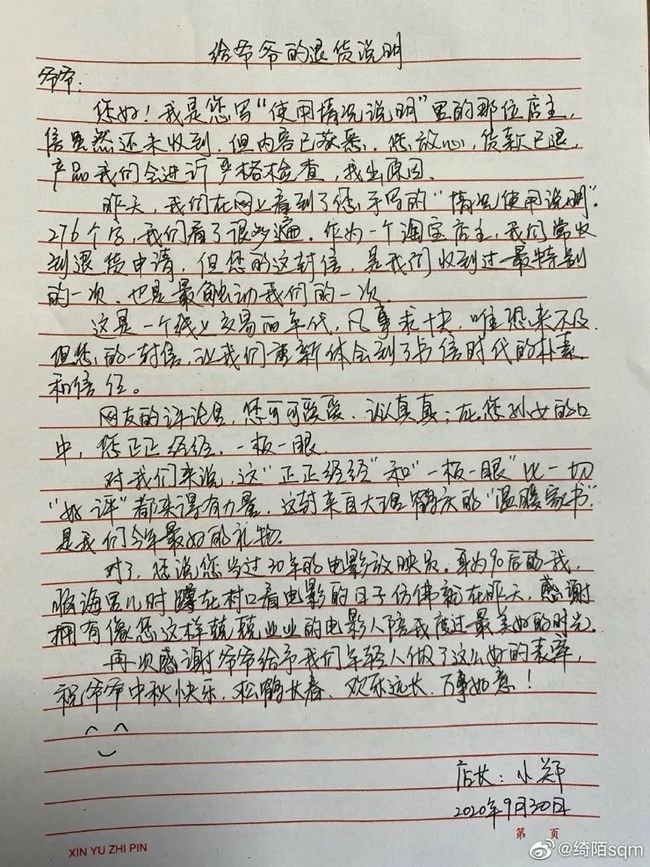 给爷爷的退货说明
爷爷:
您好!我是您写“使用情况说明”里的那位店主,
信虽然还未收到,但内容已获悉,您放心,货款已退,
产品我们会进行严格检查,找出原因。
昨天,我们在网上看到了您手写的“情况使用说明”.
276个字,我们看了很多遍。作为一个淘宝店主,我们常收
到退货申请,但您的这封信,是我们收到过最特别
的一次.也是最触动我们的一次.
这是一个线上交易的年代,凡事求快.唯恐来不及.
但您的一封信,让我们重新体会到了书信时代的朴素
和信任。
网友的评论里,您可可爱爱、认认真真;在您孙女的口
中,您正正经经.一板一眼.
对我们来说,这“正正经经”和“一板一眼”比一切
“好评”都来得有力量.这封来自大理鹤庆的“温暖家书”,
是我们今年最好的礼物。
对了,您说您当过30年的电影放映员.身为90后的我,
脑海里儿时蹲在村口看电影的日子仿佛就在昨天,感谢
拥有像您这样兢兢业业的电影人陪我度过最美好的时光.
再次感谢爷爷给予我们年轻人做了这么好的表率,
祝爷爷中秋快乐,松鹤长春、欢乐远长.万事如意!
店长:小郑
2020年9月30日
XIN YU ZHI PIN
第 页
@绮陌sqm